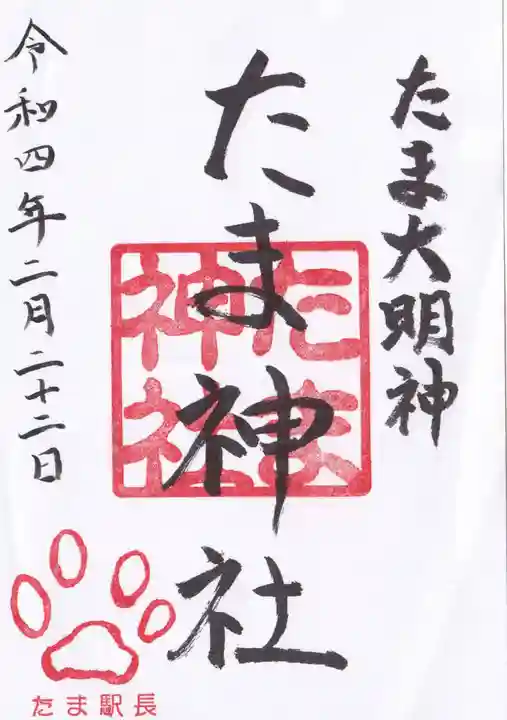 たま大明神
たま神社
たま
神社
令和四年二月二十二日
たま駅長